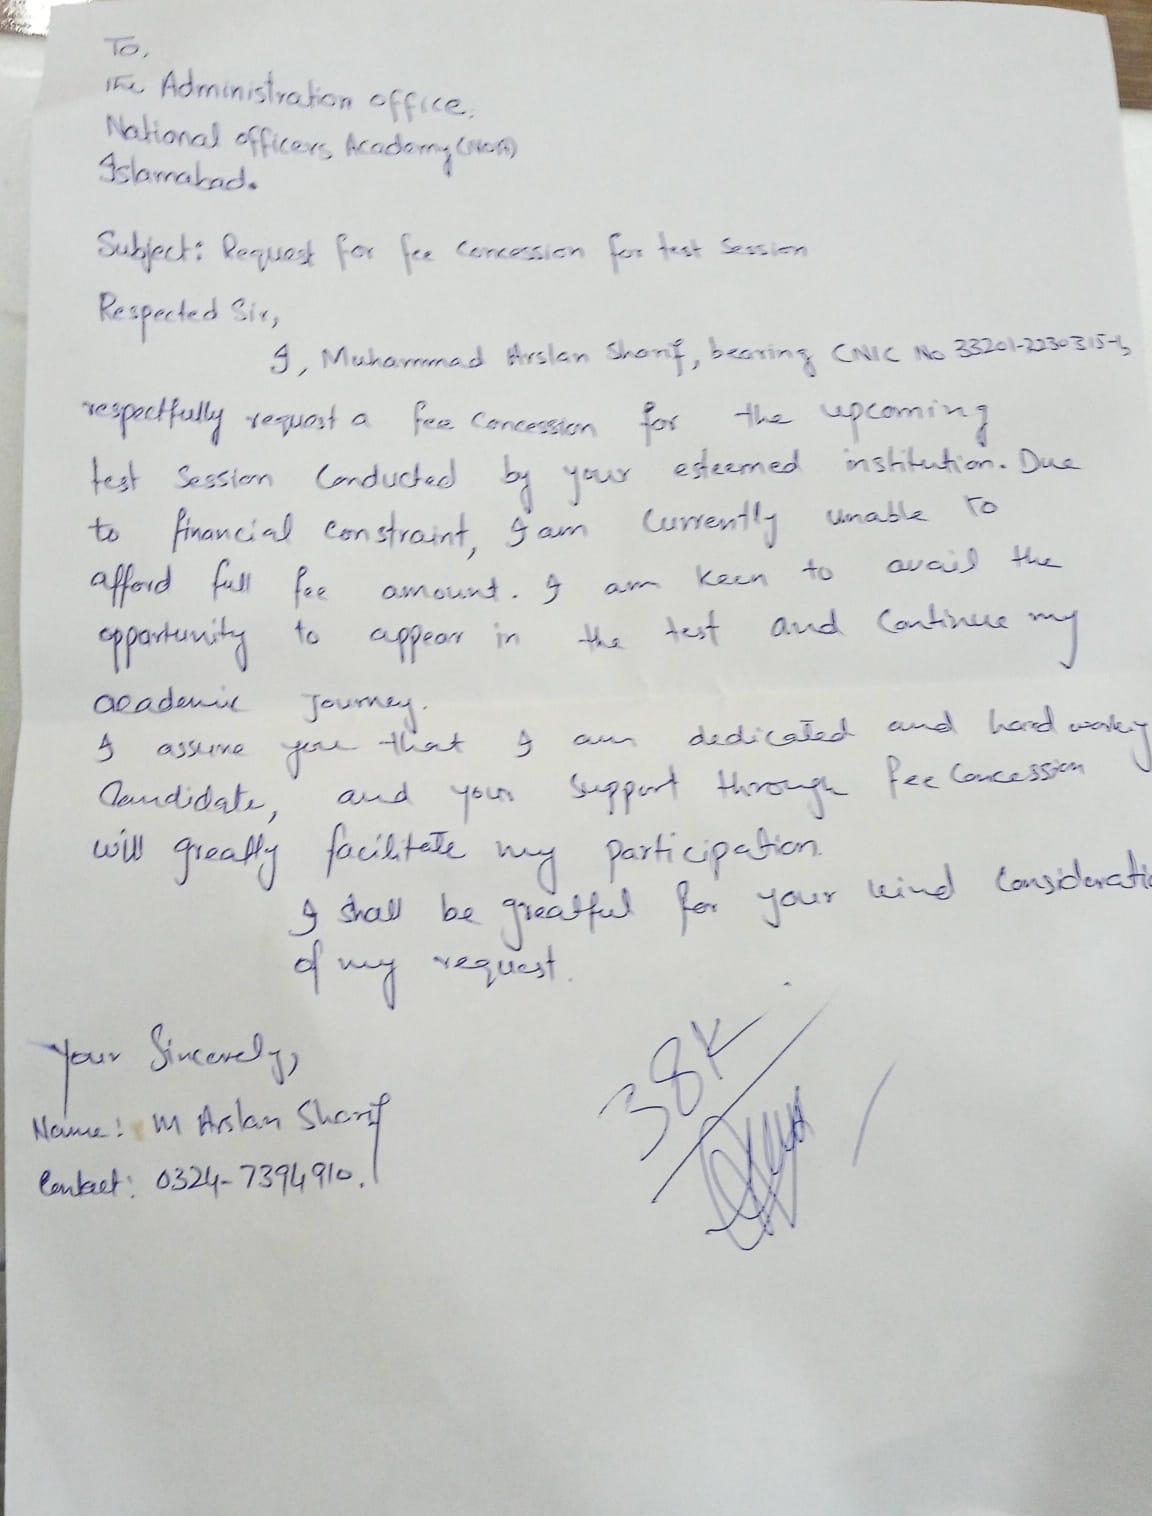 To,
The Administration office,
National officers Academy (NOA)
Islamabad.
Subject: Request for fee Concession for test Session
Respected Sir,
I, Muhammad Arslan Sharif, bearing CNIC No 33201-2230315-
respectfully request a fee Concession for the upcoming
test Session Conducted by your esteemed institution. Due
to financial Constraint, I am Currently unable to
afford full fee amount. I am keen to avail the
opportunity to appear in the test and Continue my
academic Journey.
I assure you that I am dedicated and hard working
Candidate, and your Support through fee Concession
will greatly facilitate my participation.
I shall be greatful for your kind Consideratio
of my request.
Your Sincerely,
Name: M Arslan Sharif
Contact: 0324-7394910.
38K